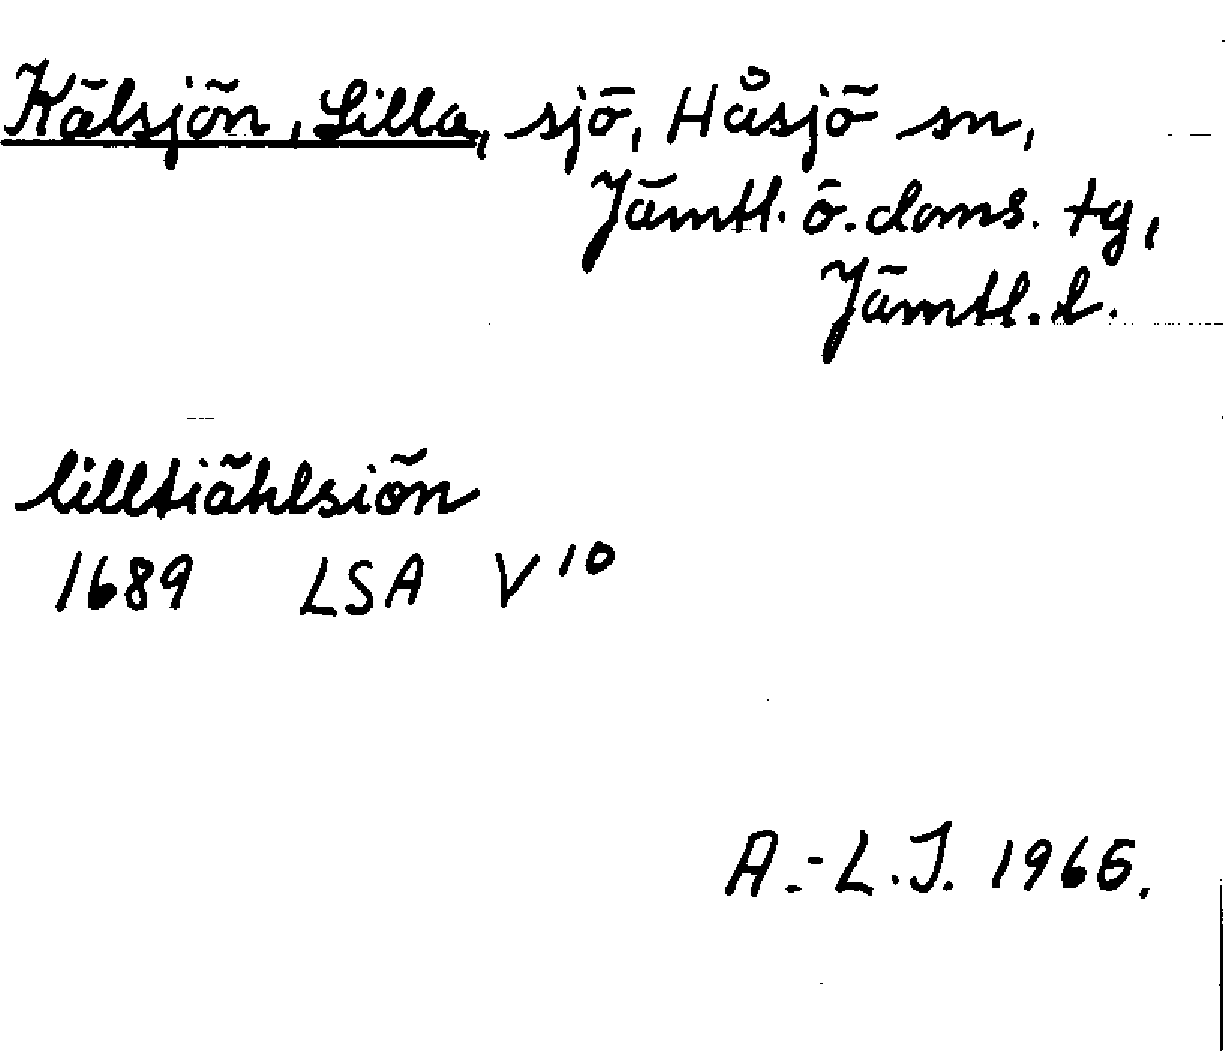 Kälsjön, Lilla, sjö, Håsjö sn,
Jämtl. ö. doms. tg,
Jämtl. l.
lilltiählsiön
1689 LSA V 10
A.-L.J. 1965.